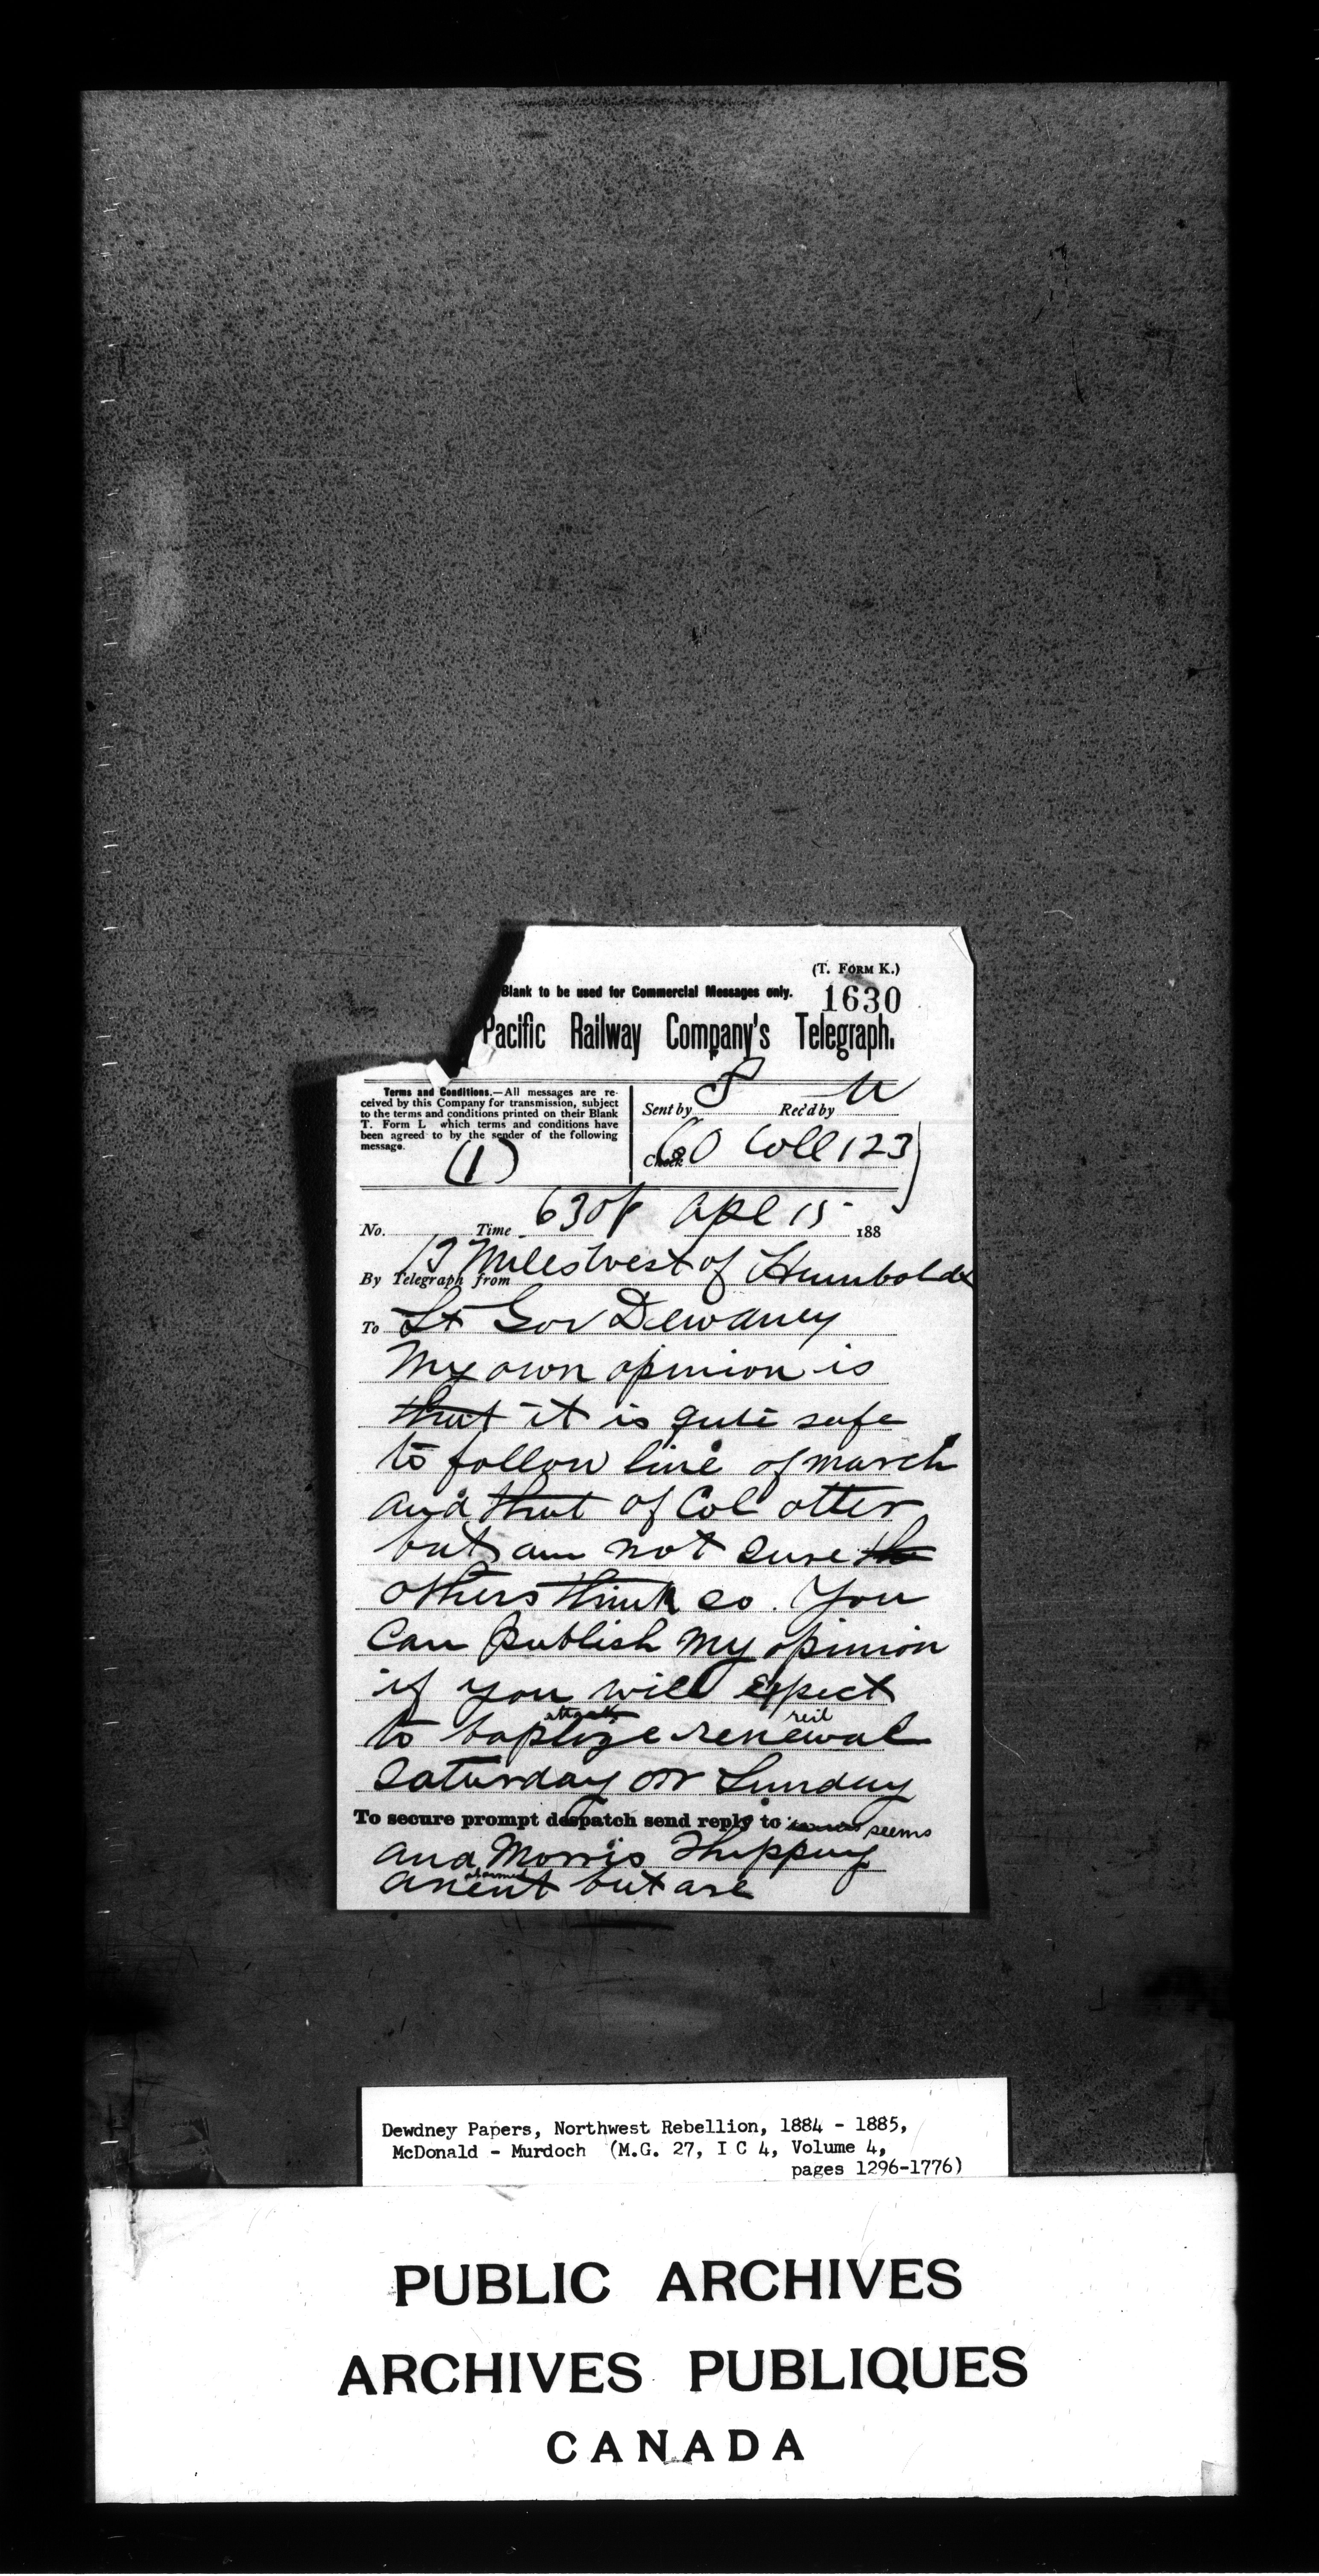 (T. FORM K.)
Blank to be used for Commercial Messages only.
1630
Pacific Railway Company's Telegraph.
Terms and Conditions.—All messages are re-
ceived by this Company for transmission, subject
to the terms and conditions printed on their Blank
T. Form L which terms and conditions have
been agreed to by the sender of the following
message.
(1)
Sent by S Rec'd by
Check 60 Coll 123
No. Time 630p Apl 15 188
By Telegraph from 13 Miles West of Humboldt
To Lt Gov Dewdney
My own opinion is
that it is quite safe
to follow line of march
and that of Col otter
but am not sure the
others think so. You
can publish my opinion
if you will expect
to baptize renewal
attack reil
Saturday or Sunday
To secure prompt despatch send reply to seems
and Morris Thipping
alarmed
anent but are
Dewdney Papers, Northwest Rebellion, 1884 - 1885,
McDonald - Murdoch (M.G. 27, I C 4, Volume 4,
pages 1296-1776)
PUBLIC ARCHIVES
ARCHIVES PUBLIQUES
CANADA